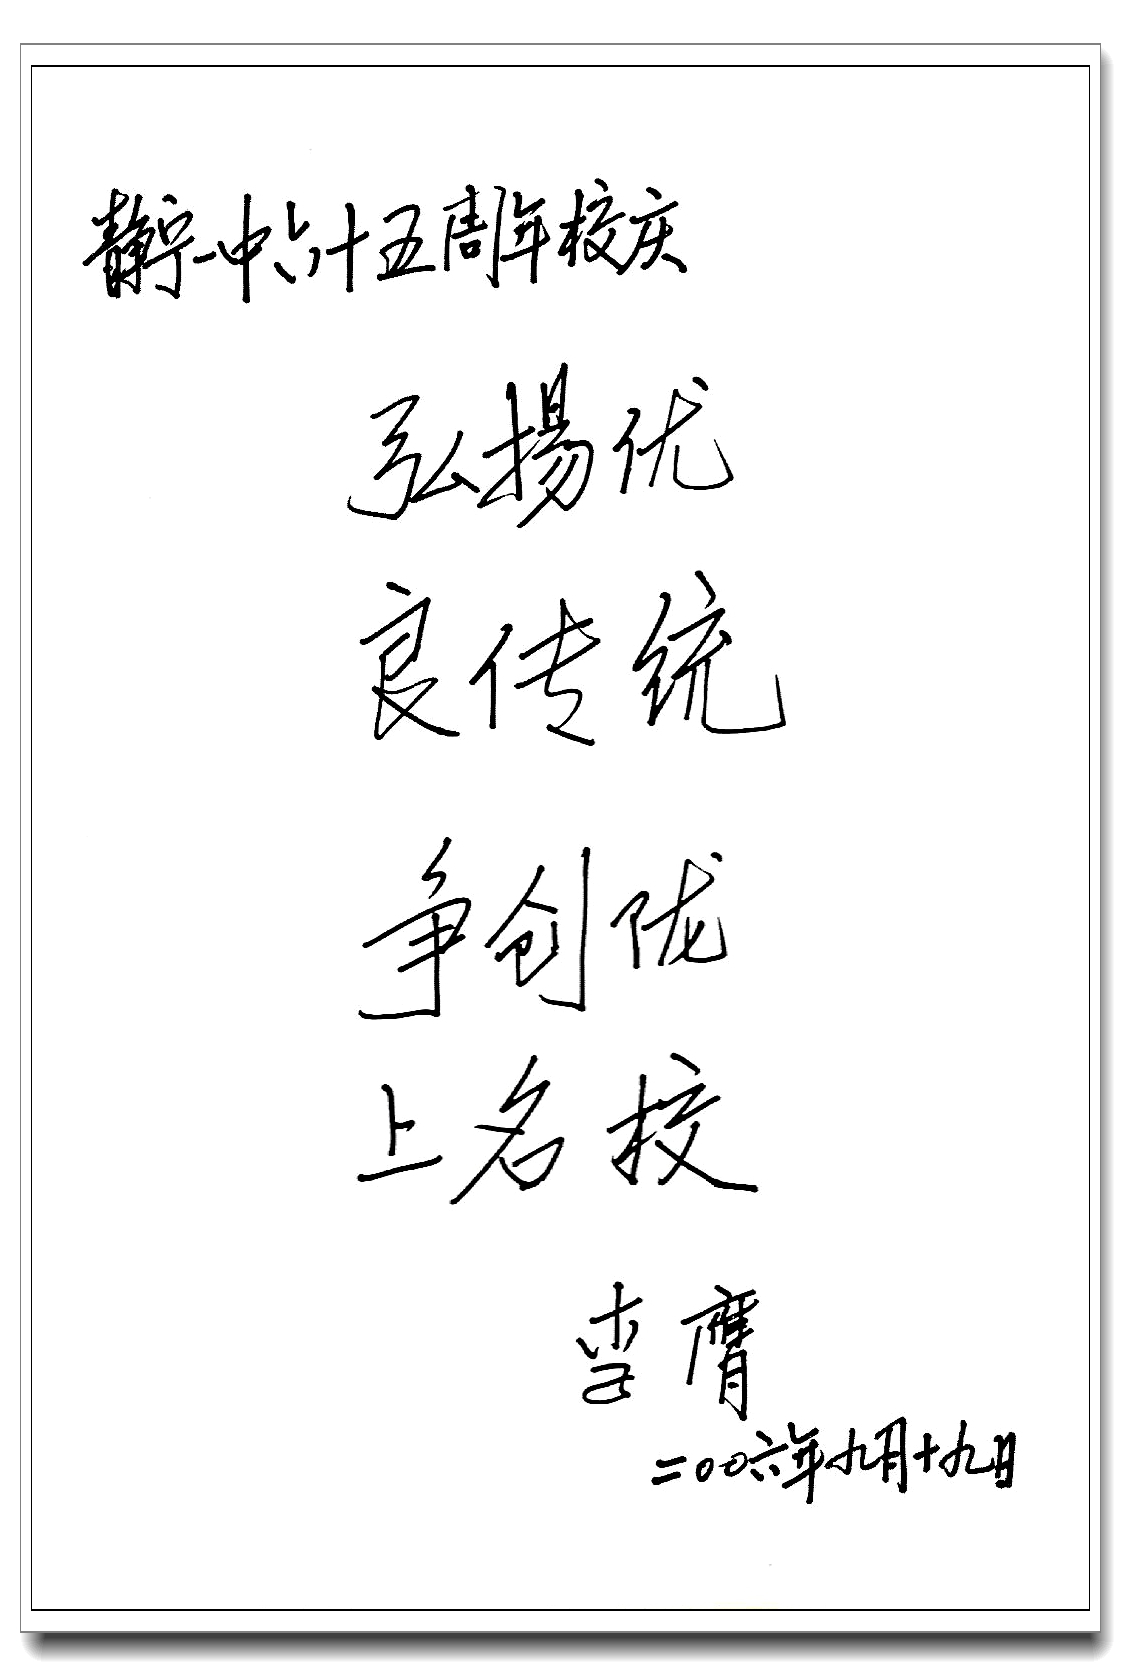 静宁一中六十五周年校庆
弘揚优
良传统
争创陇
上名校
李膺
二〇〇六年九月十九日